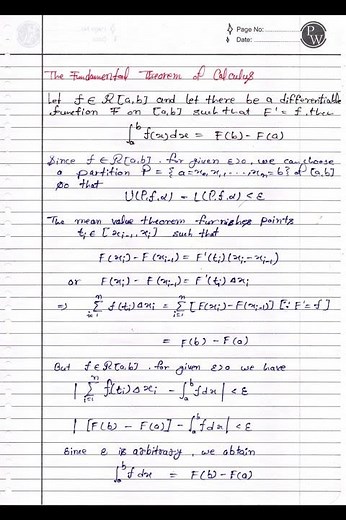 Page No:
Date:
PW
The Fundamental Theorem of Calculus
Let f ∈ R[a,b] and let there be a differentiable
function F on [a,b] such that F' = f, then
∫_a^b f(x)dx = F(b) - F(a)
Since f ∈ R[a,b]. for given ε>0, we can choose
a partition P = {a=x₀, x₁, ..., xₙ=b} of [a,b]
so that
U(P,f,α) - L(P,f,α) < ε
The mean value theorem furnishes points
tᵢ ∈ [xᵢ₋₁, xᵢ] such that
F(xᵢ) - F(xᵢ₋₁) = F'(tᵢ)(xᵢ - xᵢ₋₁)
or F(xᵢ) - F(xᵢ₋₁) = F'(tᵢ) Δxᵢ
⇒ Σ_{i=1}^n f(tᵢ) Δxᵢ = Σ_{i=1}^n [F(xᵢ) - F(xᵢ₋₁)] [∵ F' = f]
= F(b) - F(a)
But f ∈ R[a,b]. for given ε>0 we have
| Σ_{i=1}^n f(tᵢ) Δxᵢ - ∫_a^b f dx | < ε
| [F(b) - F(a)] - ∫_a^b f dx | < ε
Since ε is arbitrary, we obtain
∫_a^b f dx = F(b) - F(a)